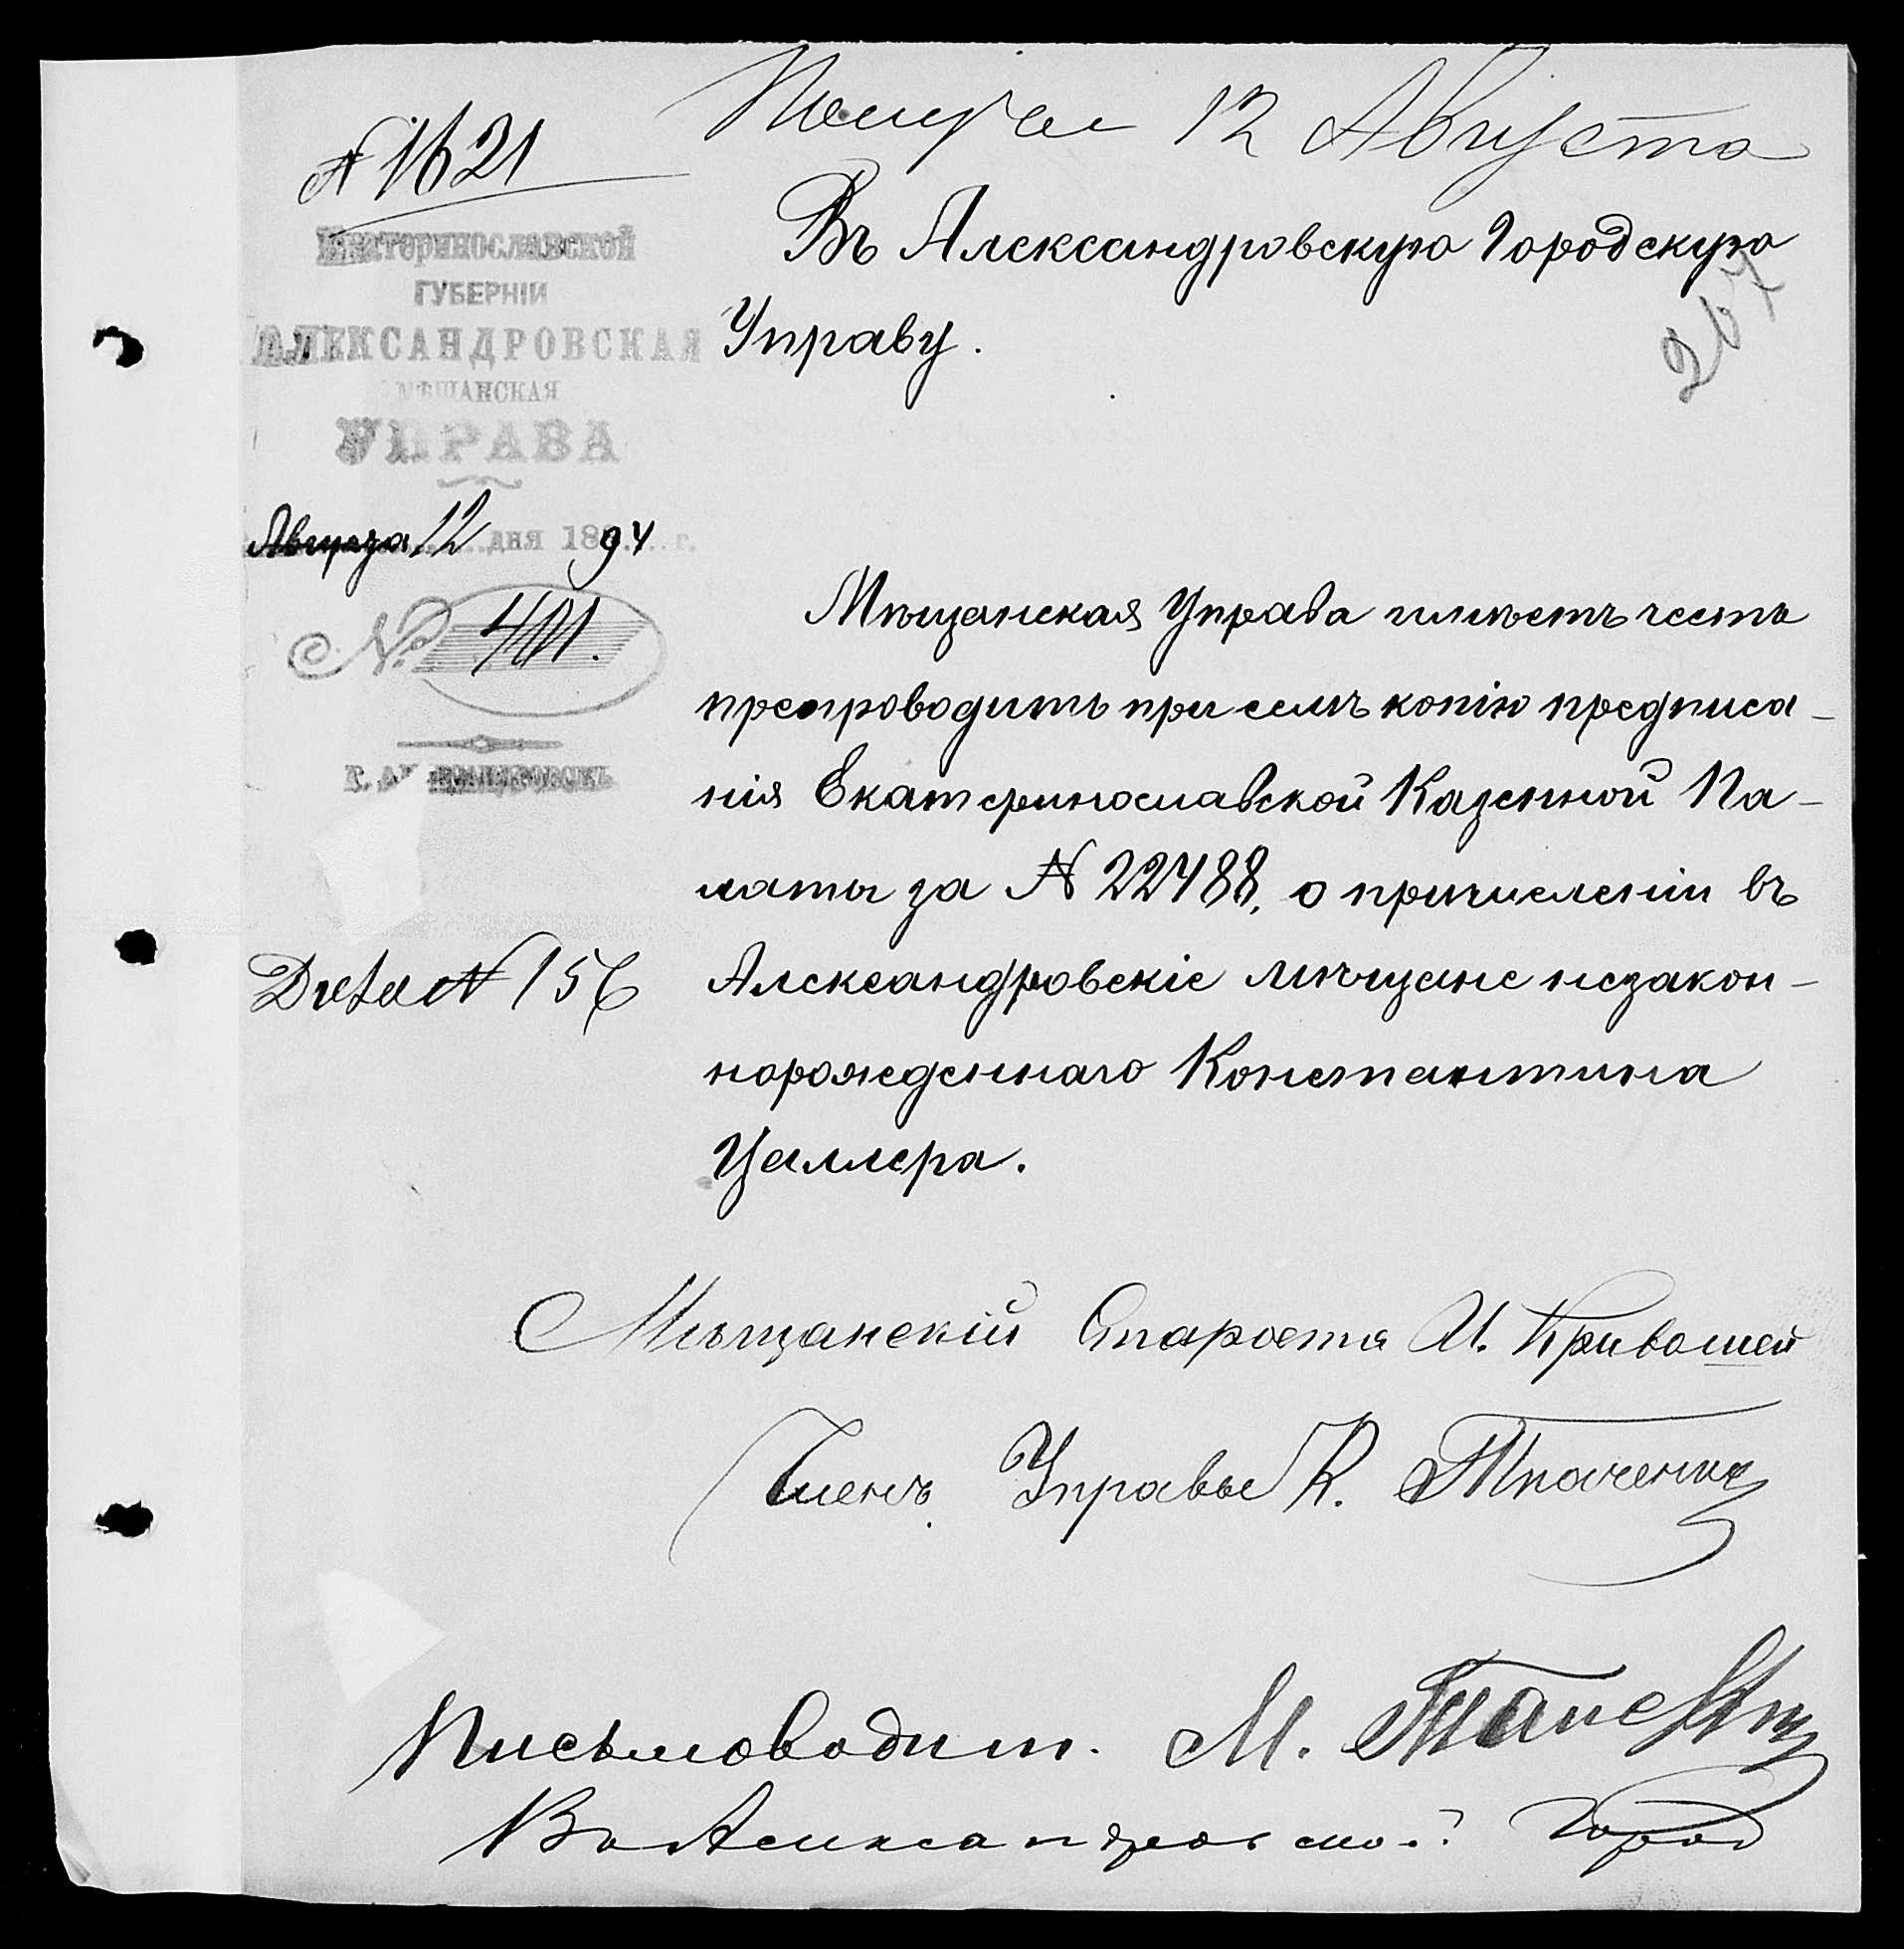 № 1621
Получен 12 Августа
Екатеринославской
ГУБЕРНІИ
АЛЕКСАНДРОВСКАЯ
МѢЩАНСКАЯ
УПРАВА
Августа 12 дня 1894 г.
№ 401.
г. Александровскъ
Въ Александровскую Городскую
Управу.
267
Мѣщанская Управа имѣетъ честь
препроводить при семъ копію предписа-
нія Екатеринославской Казенной Па-
латы за № 22488, о причисленіи въ
Александровскіе мѣщане незакон-
норожденнаго Константина
Цаллера.
№ 156
Мѣщанскій Староста И. Кривошей
Членъ Управы К. Ткаченко
Письмоводит. М.
Въ Город